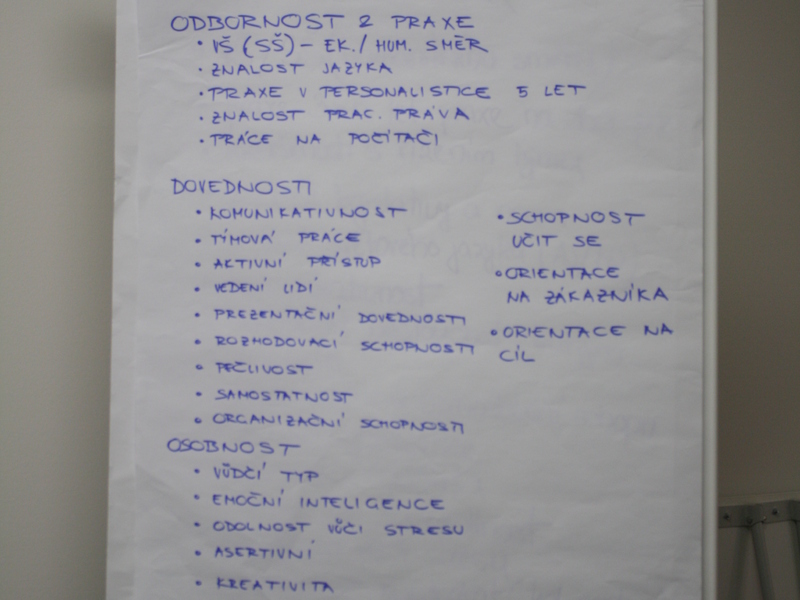 ODBORNOST Z PRAXE
• VŠ (SŠ) – EK. / HUM. SMĚR
• ZNALOST JAZYKA
• PRAXE V PERSONALISTICE 5 LET
• ZNALOST PRAC. PRÁVA
• PRÁCE NA POČÍTAČI
DOVEDNOSTI
• KOMUNIKATIVNOST
• TÝMOVÁ PRÁCE
• AKTIVNÍ PŘÍSTUP
• VEDENÍ LIDÍ
• PREZENTAČNÍ DOVEDNOSTI
• ROZHODOVACÍ SCHOPNOSTI
• PEČLIVOST
• SAMOSTATNOST
• ORGANIZAČNÍ SCHOPNOSTI
• SCHOPNOST
UČIT SE
• ORIENTACE
NA ZÁKAZNÍKA
• ORIENTACE NA
CÍL
OSOBNOST
• VŮDČÍ TYP
• EMOČNÍ INTELIGENCE
• ODOLNOST VŮČI STRESU
• ASERTIVNÍ
• KREATIVITA